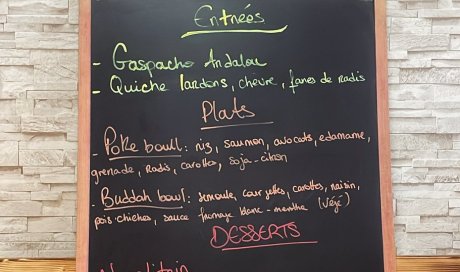 Entrées
- Gaspacho Andalou
- Quiche lardons, chèvre, fanes de radis
Plats
- Poke bowll : riz, saumon, avocats, edamame,
grenade, Radis, carottes, soja-citron
- Buddah bowl : semoule, courgettes, carottes, raisin,
pois-chiches, sauce fromage blanc-menthe (végé)
DESSERTS
Napolitain